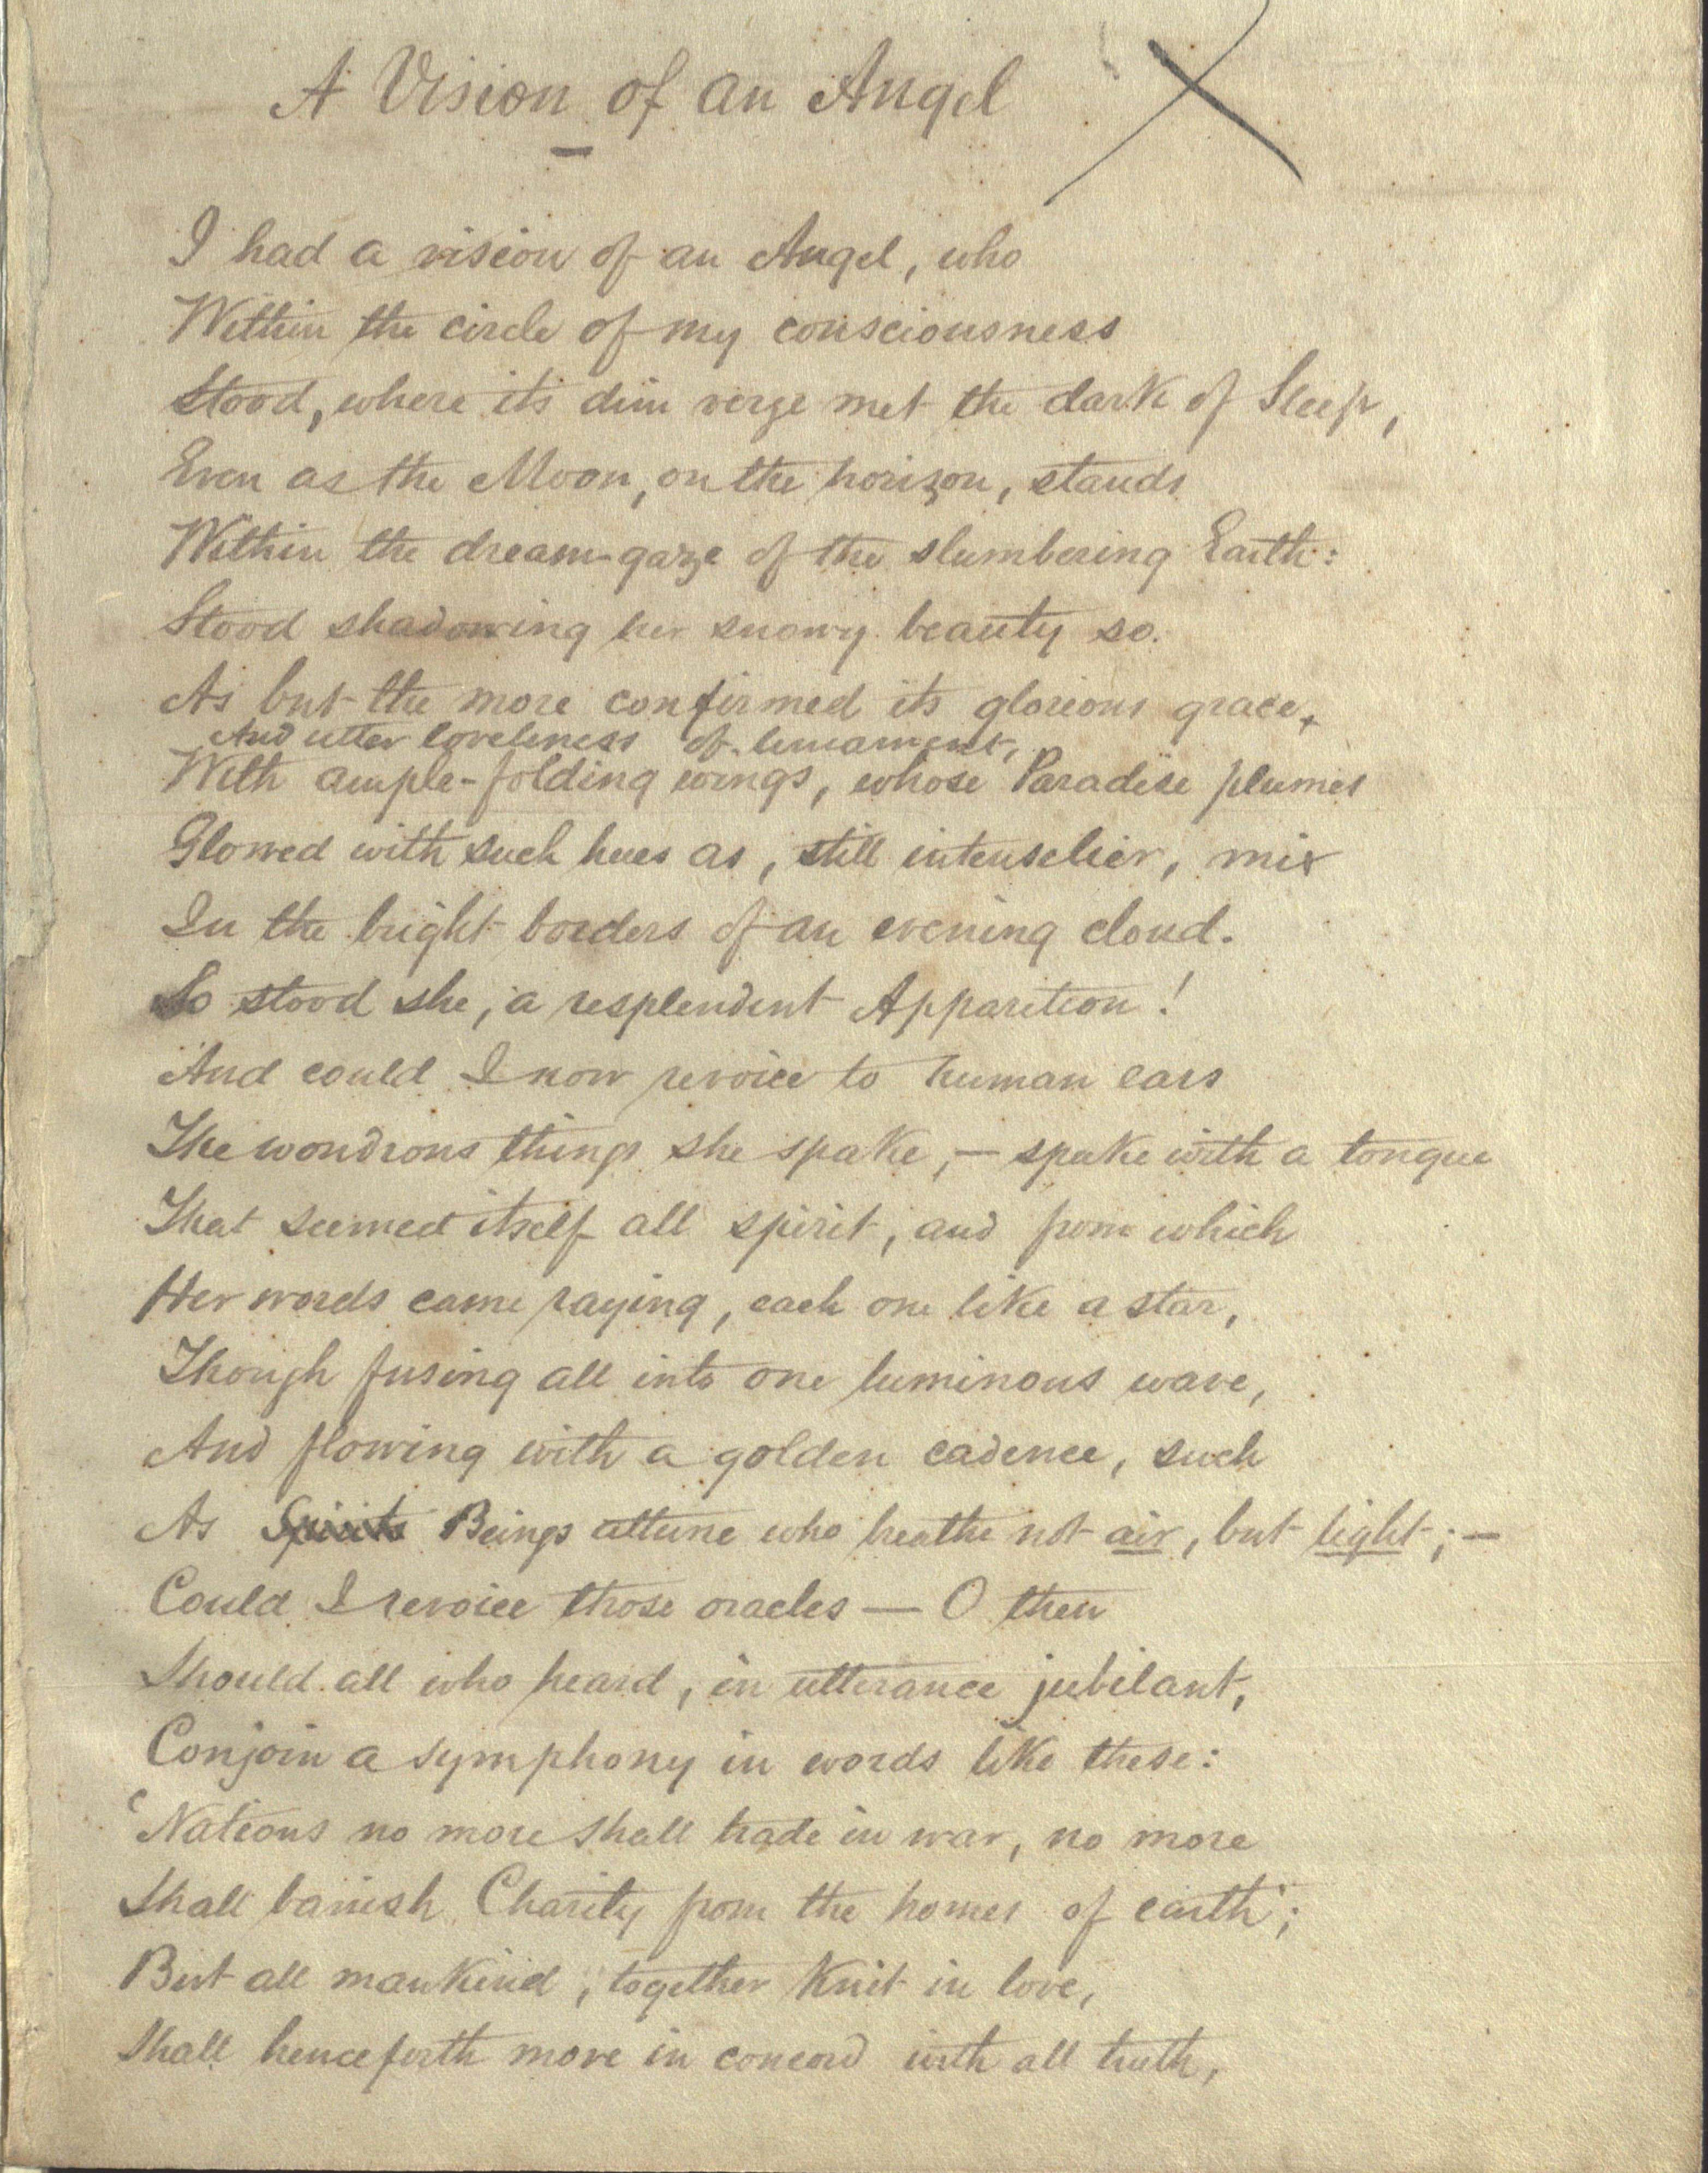 A Vision of an Angel
I had a vision of an Angel, who
Within the circle of my consciousness
Stood, where its dim verge met the dark of Sleep,
Even as the Moon, on the horizon, stands
Within the dream-gaze of the slumbering Earth:
Stood shadowing her snowy beauty so.
As but the more confirmed its glorious grace,
And utter loveliness of lineament,
With ample-folding wings, whose Paradise plumes
Glowed with such hues as, still intenselier, mix
In the bright borders of an evening cloud.
So stood she, a resplendent Apparition!
And could I now revoice to human ears
The wondrous things she spake, — spake with a tongue
That seemed itself all spirit, and from which
Her words came raying, each one like a star,
Though fusing all into one luminous wave,
And flowing with a golden cadence, such
As Spirits Beings attune who breathe not air, but light; —
Could I revoice those oracles — O then
Should all who heard, in utterance jubilant,
Conjoin a symphony in words like these:
'Nations no more shall trade in war, no more
Shall banish Charity from the homes of earth;
But all mankind, together knit in love,
Shall henceforth move in concord with all truth,